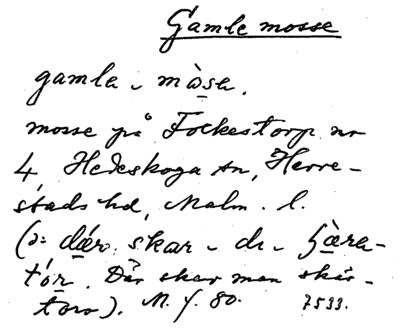 Gamle mosse
gamla - mòsa.
mosse på Fockestorp nr
4 Hedeskoga sn, Herre-
stads hd, Malm. l.
(ɔ: dǽr. skar - di -
tór. Där skar man skär-
torv). M. f. 80. 7533.